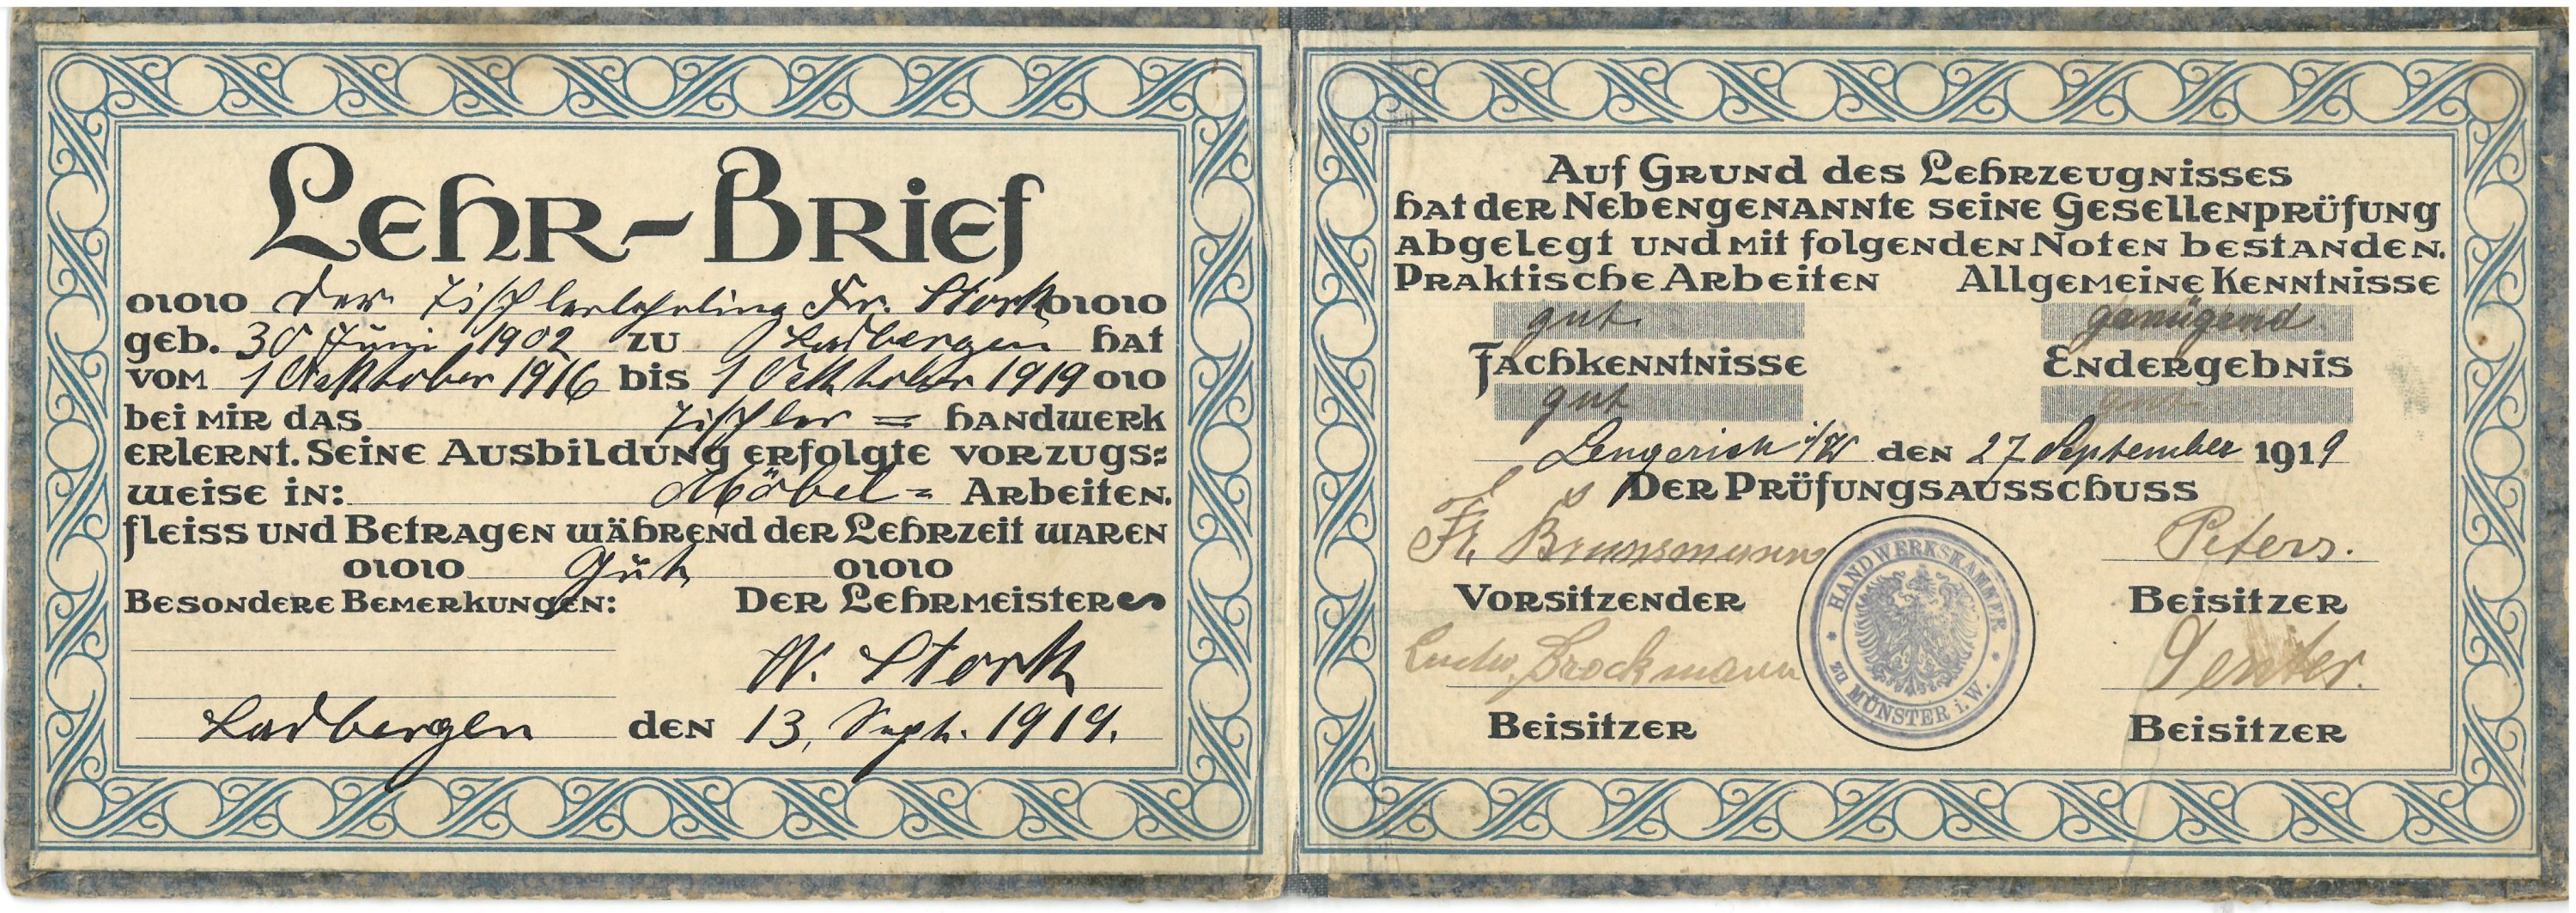 Lehr-Brief
Der Tischlerlehrling Fr. Stork
geb. 30 Juni 1902 zu Ladbergen hat
vom 1 Oktober 1916 bis 1 Oktober 1919
bei mir das Tischler= Handwerk
erlernt. Seine Ausbildung erfolgte vorzugs=
weise in: Möbel= Arbeiten.
Fleiss und Betragen während der Lehrzeit waren
Gut
Besondere Bemerkungen: Der Lehrmeister
W. Stork
Ladbergen den 13. Sept. 1919.
Auf Grund des Lehrzeugnisses
hat der Nebengenannte seine Gesellenprüfung
abgelegt und mit folgenden Noten bestanden.
Praktische Arbeiten Allgemeine Kenntnisse
gut genügend
Fachkenntnisse Endergebnis
gut gut
Lengerich i/W den 27 September 1919
Der Prüfungsausschuss
Fr. Brunsmann Peters.
Vorsitzender Beisitzer
Brockmann
Beisitzer Beisitzer
HANDWERKSKAMMER
zu MÜNSTER i. W.